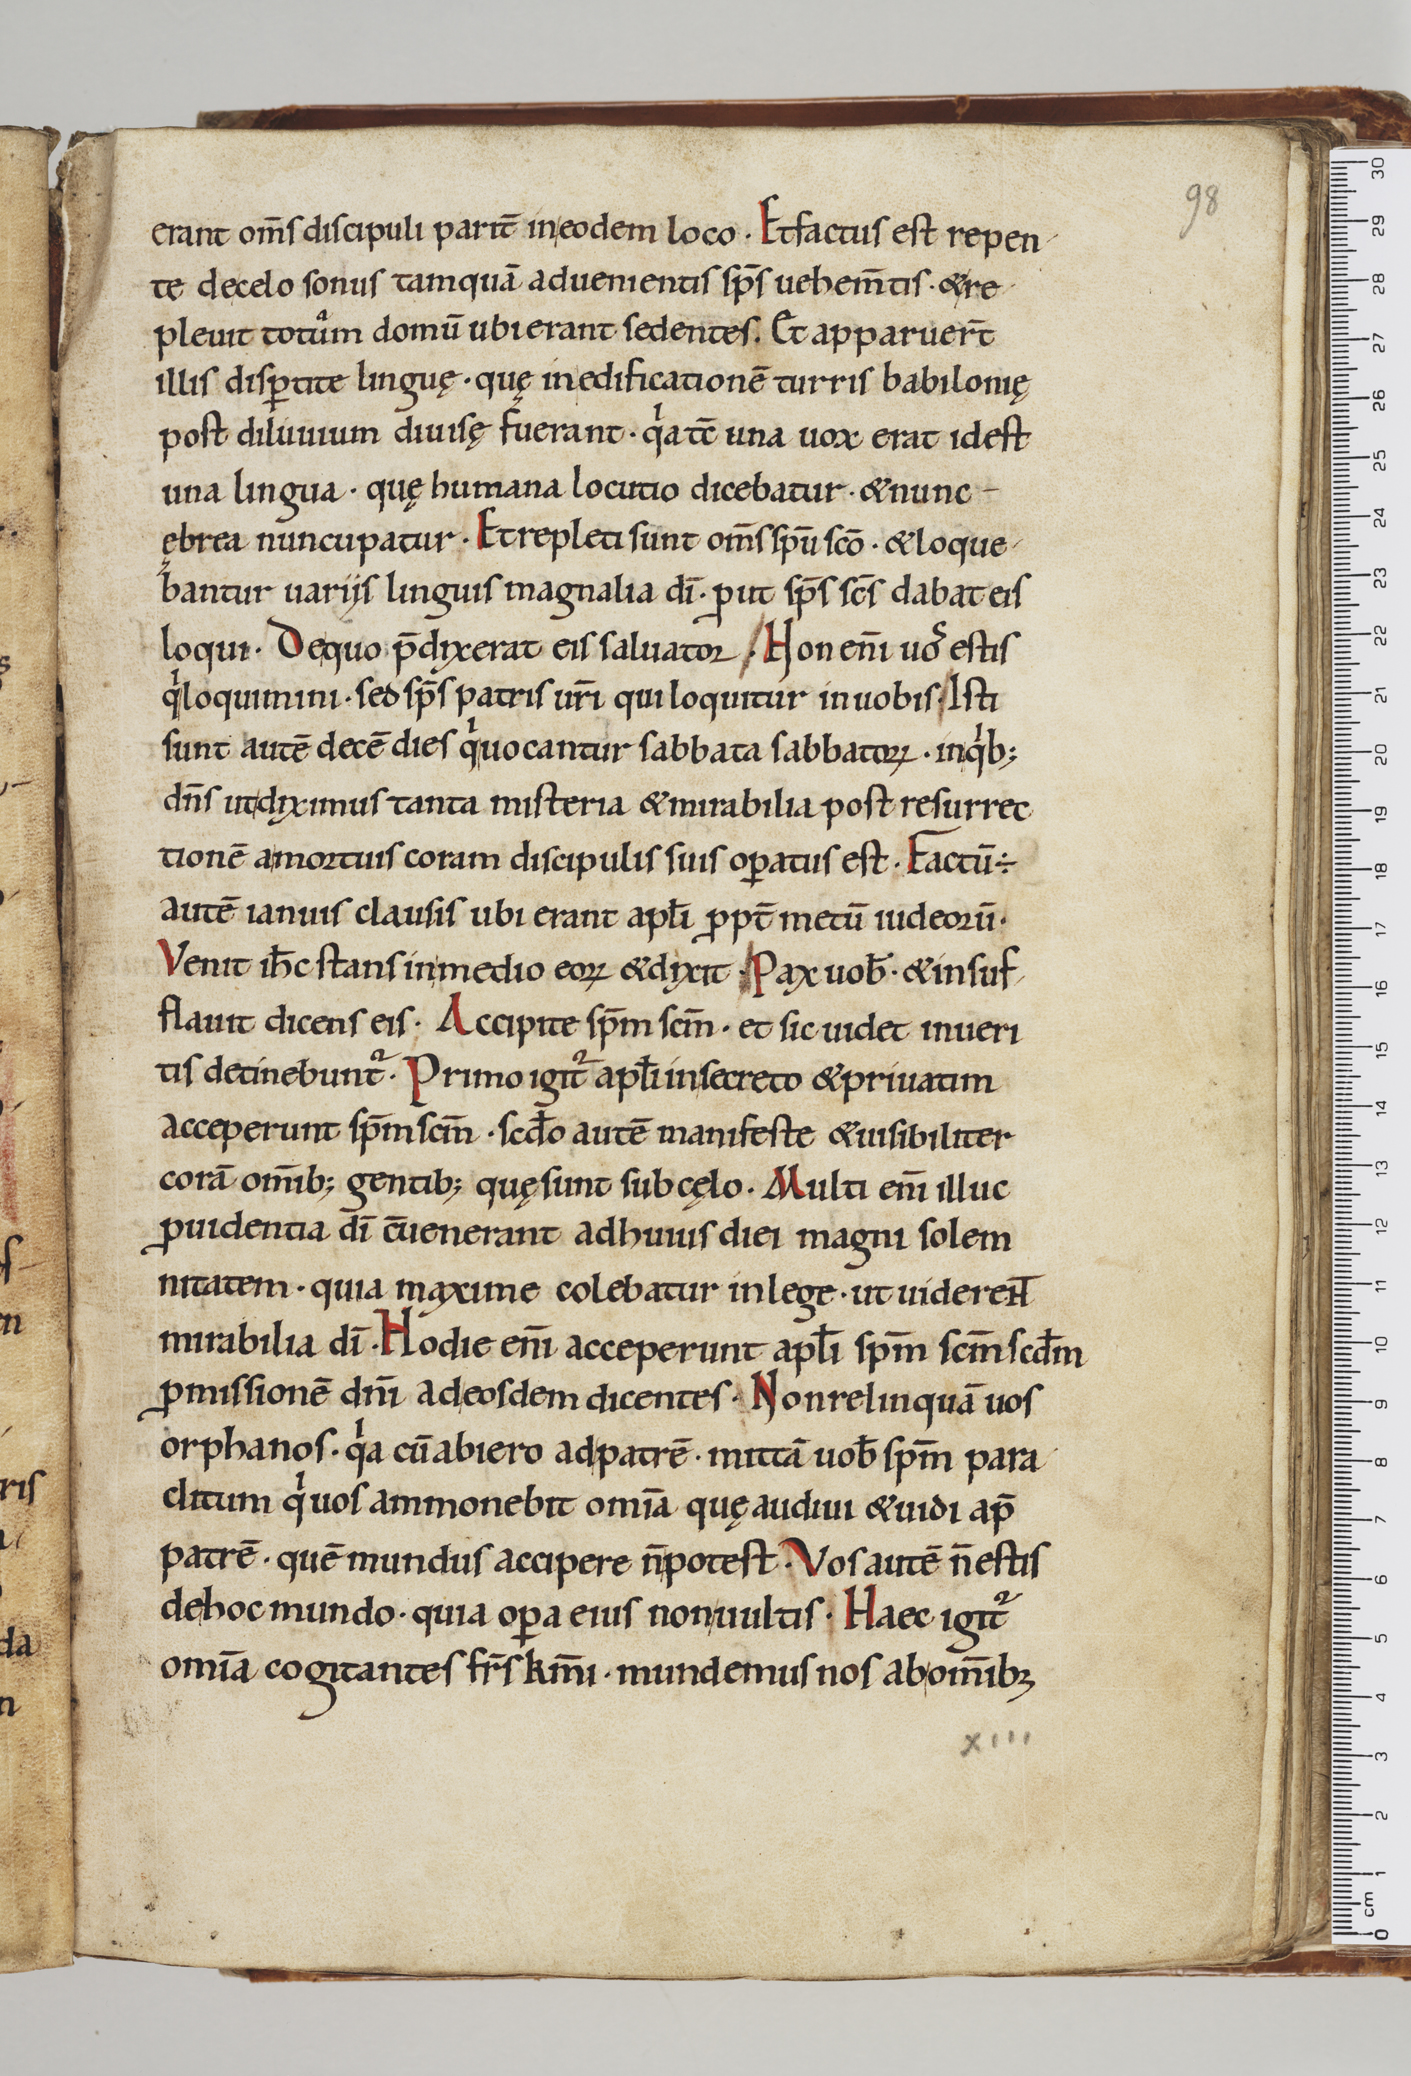 98
erant om̄s discipuli parit̄ in eodem loco · Et factus est repen-
te decelo sonus tamquā aduenientis sp̄s uehem̄tis · & re-
pleuit totum domū ubi erant sedentes. Et apparuer̄t
illis disꝑtite linguę · quę in edificationē turris babilonię
post diluuium diuisę fuerant · qͥa tc̄ una uox erat idest
una lingua · quę humana locutio dicebatur · & nunc
ębrea nuncupatur · Et repleti sunt om̄s sp̄u sc̄o · & loque-
bantur uariis linguis magnalia dī · ꝓut sp̄s sc̄s dabat eis
loqui · De quo p̄dixerat eis saluator · Non enī uos estis
qͥ loquimini · sed sp̄s patris ur̄i qui loquitur in uobis · Isti
sunt autē decē dies qͥ uocantur sabbata sabbatoꝝ · inqͥb;
dn̄s ut diximus tanta misteria & mirabilia post resurrec
tionē a mortuis coram discipulis suis oꝑatus est · Factū ÷
autē ianuis clausis ubi erant apl̄i ꝓpt̄ metū iudeorū ·
Venit ih̄c stans in medio eoꝝ & dixit · Pax uob̄ · & insuf-
flauit dicens eis · Accipite sp̄m sc̄m · et sic uidet inueri
tis detinebunt᷑ · Primo igit᷑ apl̄i insecreto & priuatim
acceperunt sp̄m sc̄m · scd̄o autē manifeste & uisibiliter
corā om̄ib; gentib; quę sunt sub cęlo · Multi enī illuc
ꝓuidentia dī c̄uenerant ad huius diei magni solem
nitatem · quia maxime colebatur in lege · ut uiderent̄
mirabilia dī · Hodie enī acceperunt apl̄i sp̄m sc̄m scd̄m
ꝓmissionē dn̄i ad eosdem dicentes · Non relinquā uos
orphanos · qͥa cū abiero ad patrē · mittā uob̄ sp̄m para-
clitum qͥ uos ammonebit omīa quę audiui & uidi ap̄
patrē · quē mundus accipere n̄ potest · Vos autē n̄ estis
dehoc mundo · quia oꝑa eius non uultis · Haec igit᷑
omīa cogitantes fr̄s km̄i · mundemus nos ab om̄ibꝫ
xiii